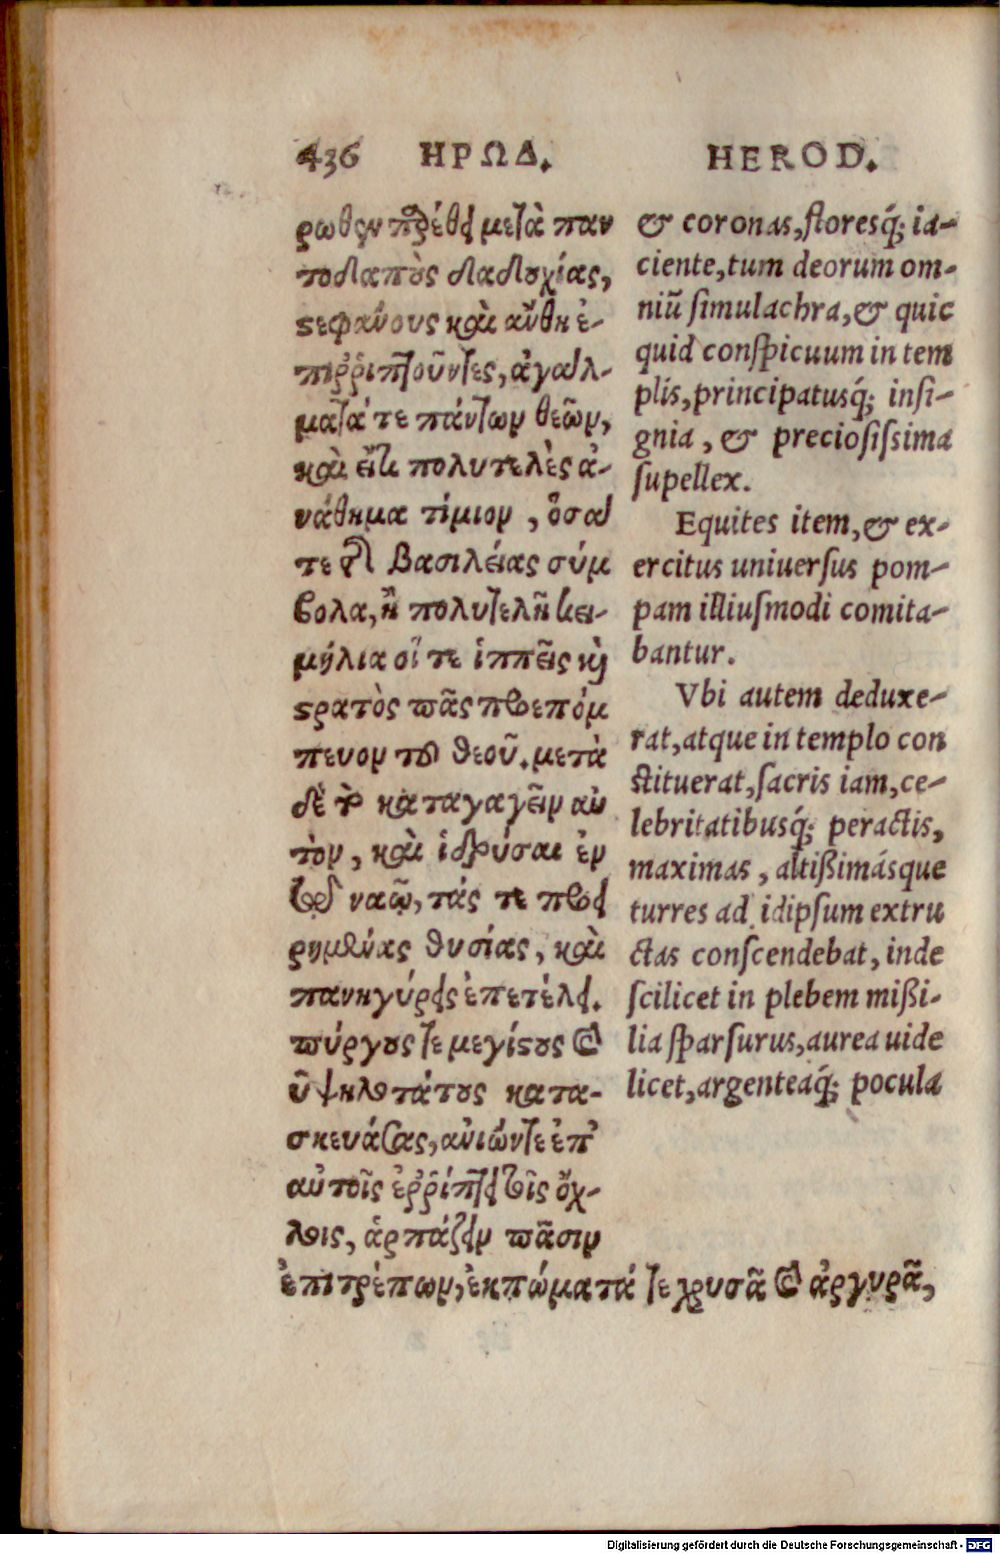 436 ΗΡΩΔ. HEROD.
ρωθεν παρέθει μετὰ παν
τοδαποῦς δαδουχίας,
στεφάνους καὶ ἄνθη ἐ-
πιῤῥιπτοῦντες, ἀγάλ-
ματά τε πάντων θεῶν,
καὶ εἴ τι πολυτελὲς ἀ-
νάθημα τίμιον, ὅσα
τε τῆς βασιλείας σύμ
βολα, ἢ πολυτελῆ κει-
μήλια οἵ τε ἱππεῖς καὶ
στρατὸς πᾶς προεπόμ
πευον τοῦ θεοῦ. μετὰ
δὲ τὸ καταγαγεῖν αὐ
τὸν, καὶ ἱδρύσαι ἐν
τῷ ναῷ, τάς τε προει
ρημένας θυσίας, καὶ
πανηγύρεις ἐπετέλει.
πύργους τε μεγίστους καὶ
ὑψηλοτάτους κατα-
σκευάσας, ἀνιών τε ἐπ'
αὐτοῖς ἐῤῥίπτει τοῖς ὄχ-
λοις, ἁρπάζειν πᾶσιν
ἐπιτρέπων, ἐκπώματά τε χρυσᾶ καὶ ἀργυρᾶ,
& coronas, floresq́; ia-
ciente, tum deorum om-
niū simulachra, & quic
quid conspicuum in tem
plis, principatusq́; insi-
gnia, & preciosissima
supellex.
Equites item, & ex-
ercitus uniuersus pom-
pam illiusmodi comita-
bantur.
Vbi autem deduxe-
rat, atque in templo con
stituerat, sacris iam, ce-
lebritatibusq́; peractis,
maximas, altißimásque
turres ad idipsum extru
ctas conscendebat, inde
scilicet in plebem mißi-
lia sparsurus, aurea uide
licet, argenteaq́; pocula
Digitalisierung gefördert durch die Deutsche Forschungsgemeinschaft - DFG